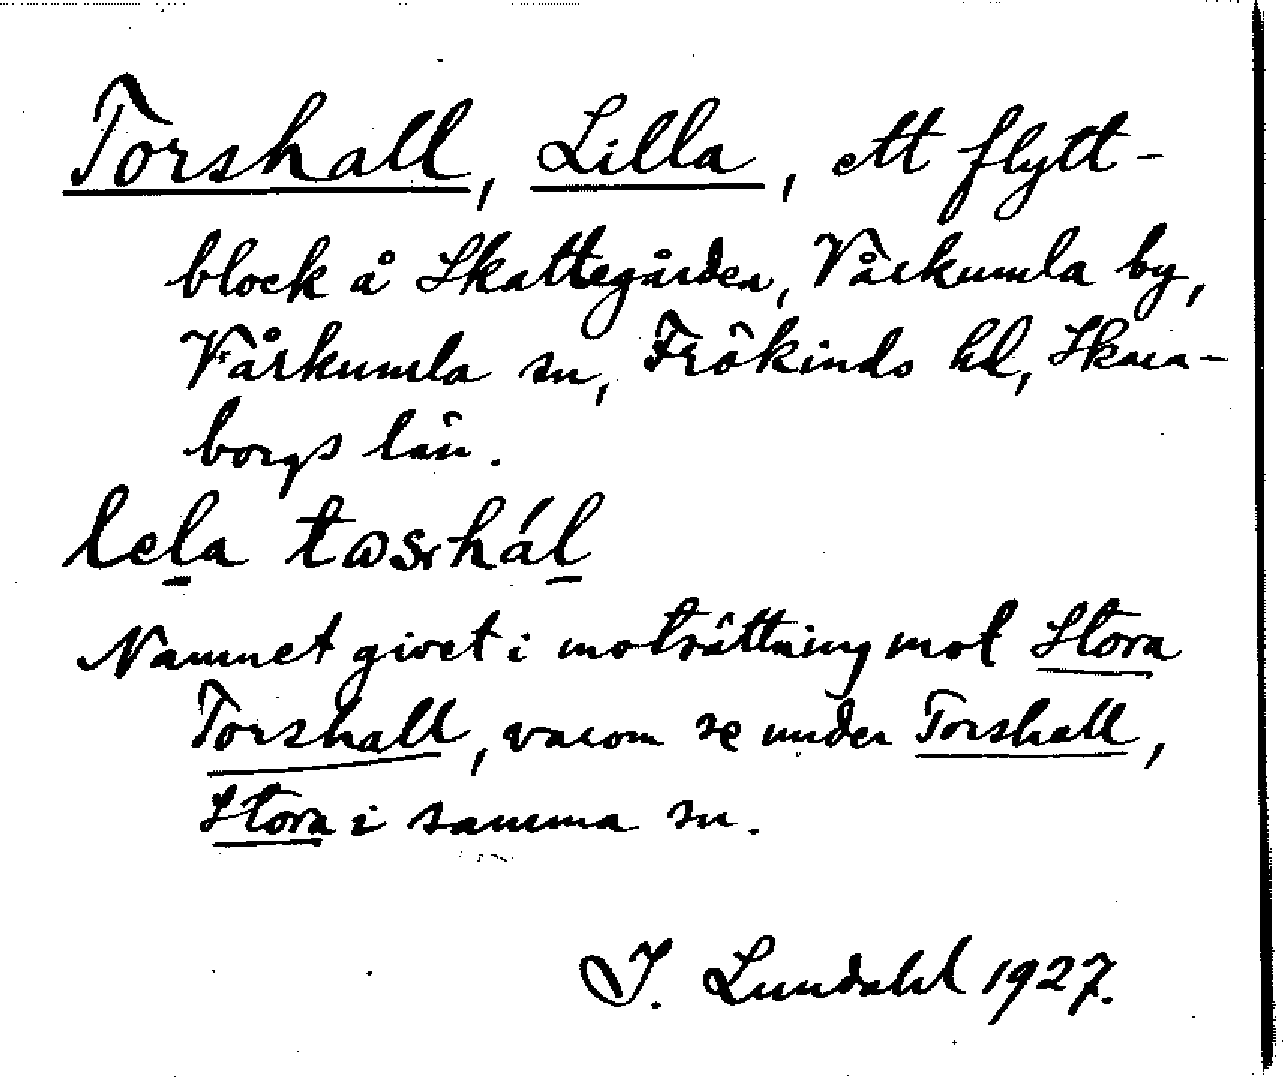 Torshall, Lilla, ett flytt-
block å Skattegården, Vårkumla by,
Vårkumla sn, Frökinds hd, Skara-
borgs län.
lela
Namnet givet i motsättning mot Stora
Torshall, varom se under Torshall,
Stora i samma sn.
I. Lundahl 1927.